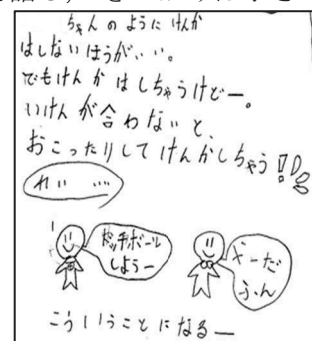 ちゃんのようにけんか
はしないほうがいい。
でもけんかはしちゃうけどー。
いけんが合わないと、
おこったりしてけんかしちゃう!!
れい……
ドッチボール
しようー
やーだ
ふん
こういうことになるー